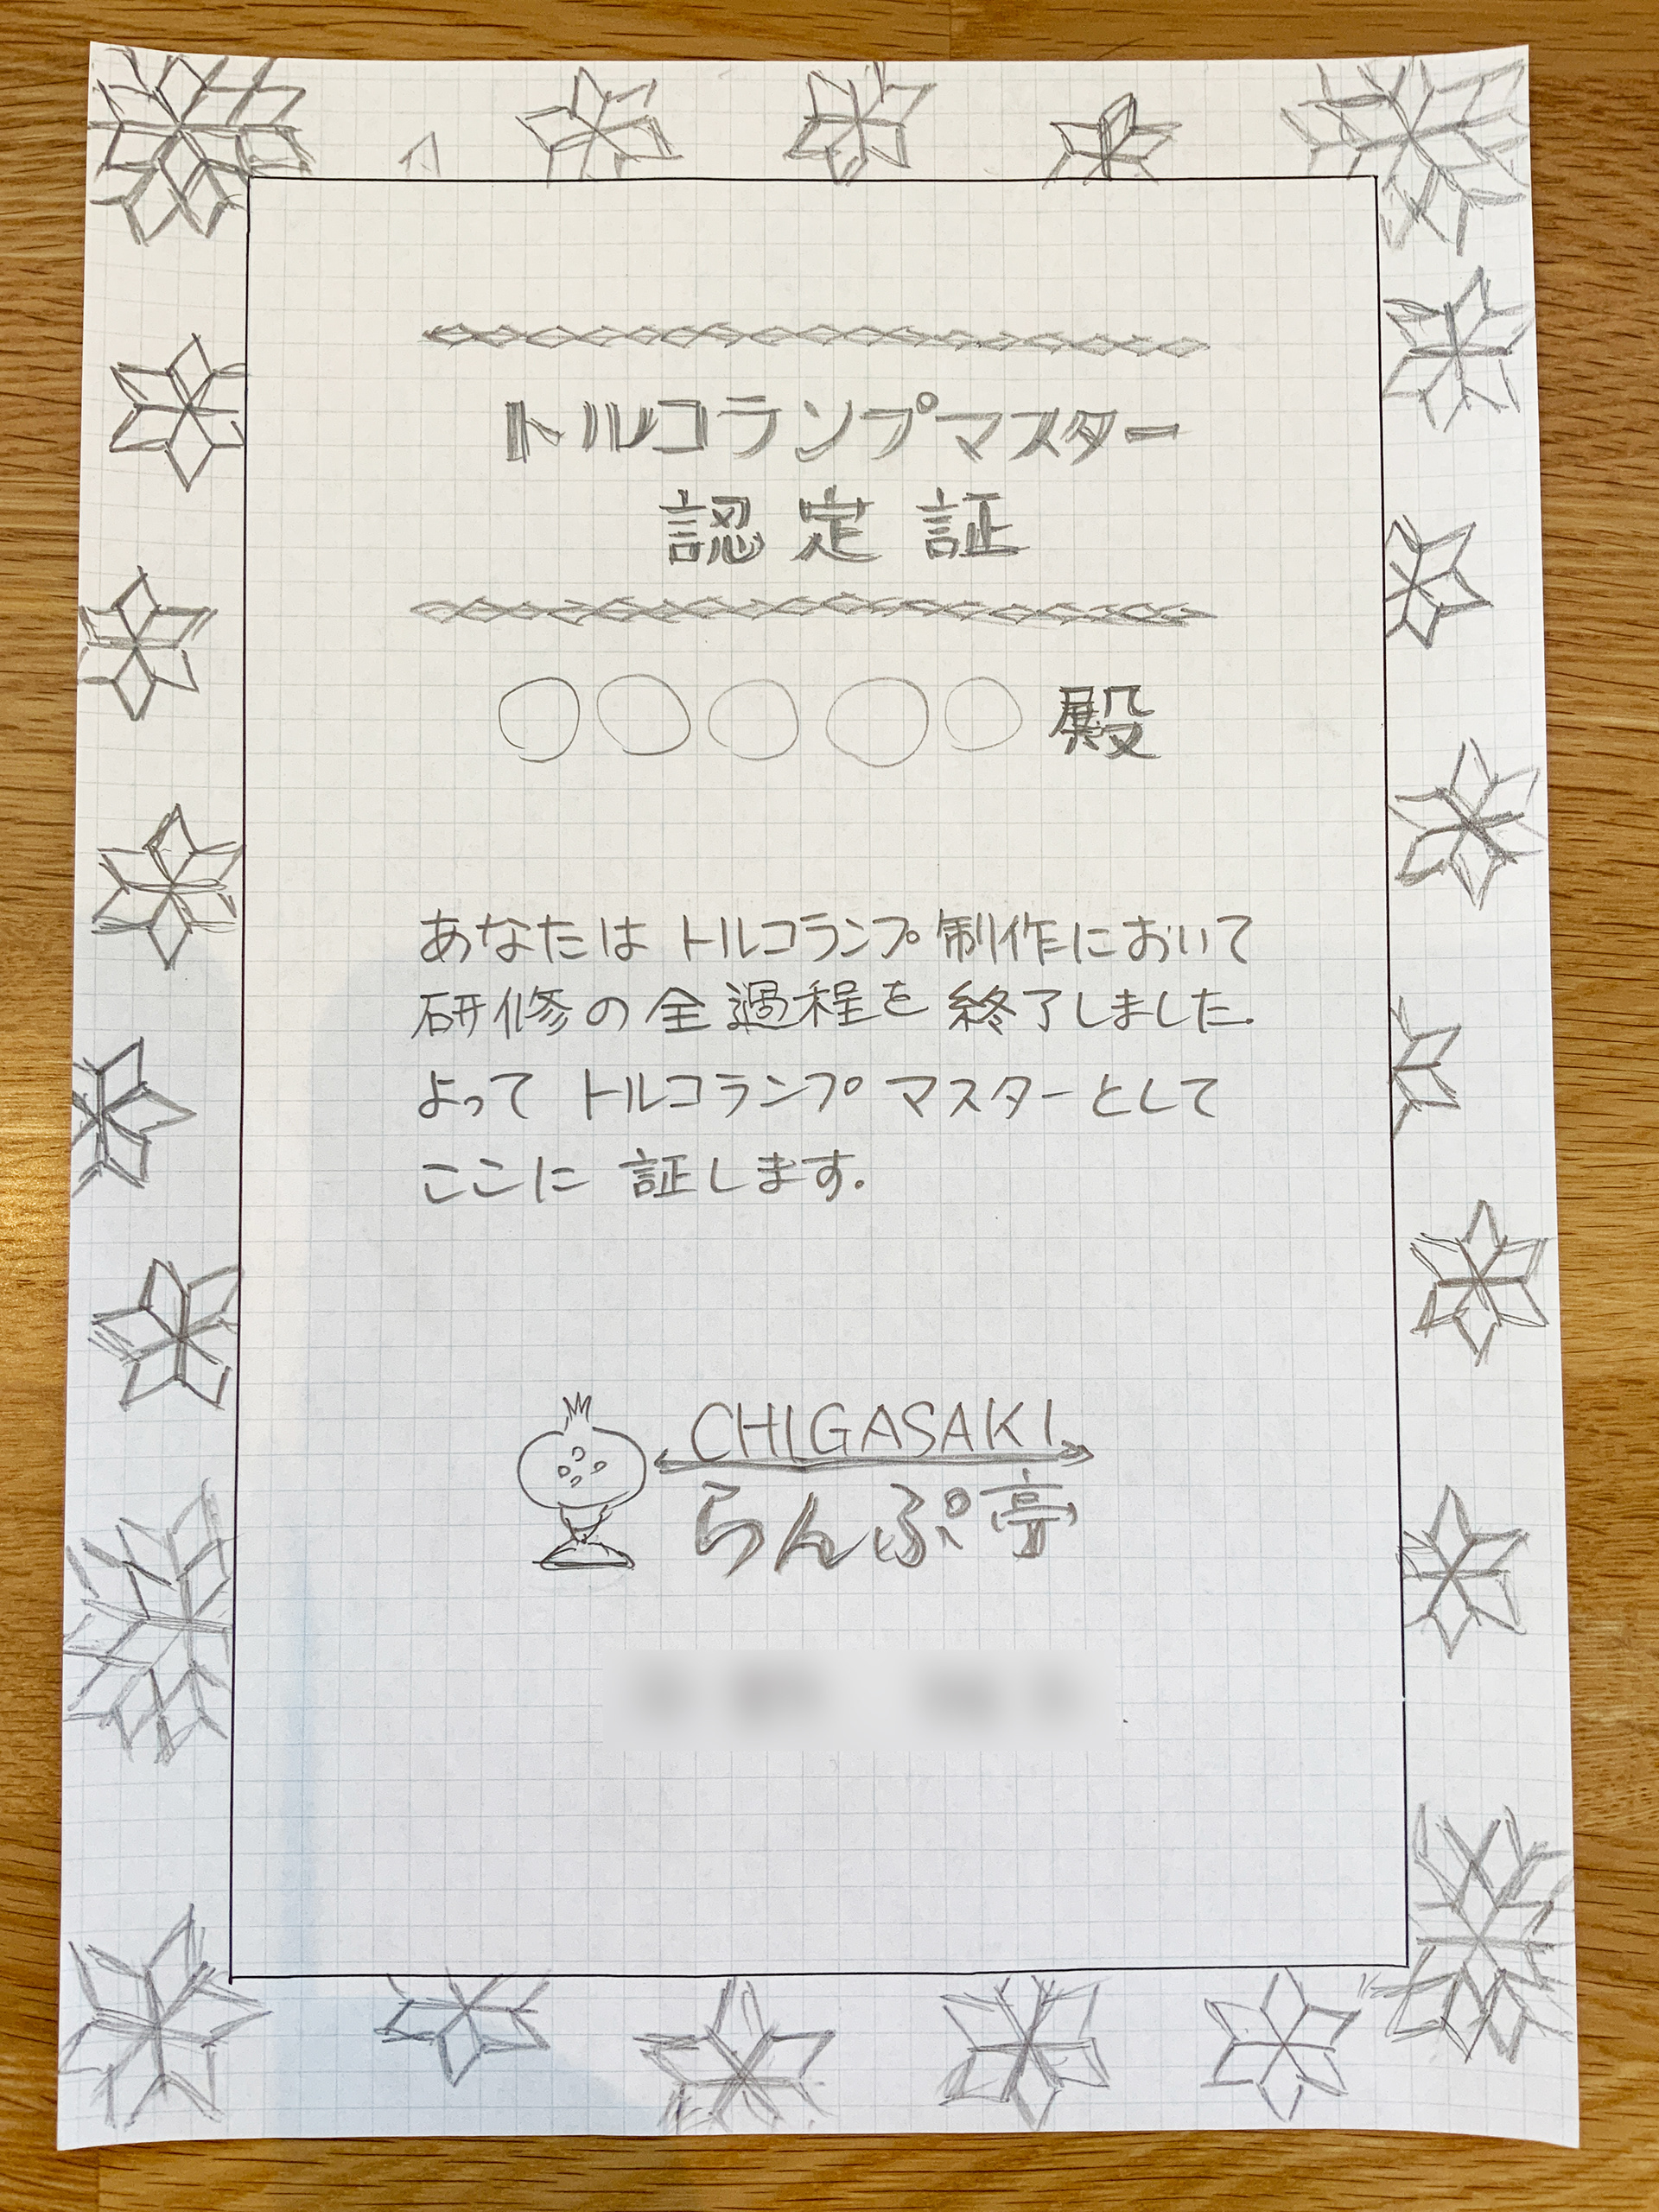 トルコランプマスター
認定証
○○○○○殿
あなたはトルコランプ制作において
研修の全過程を終了しました.
よってトルコランプマスターとして
ここに証します.
CHIGASAKI
らんぷ亭